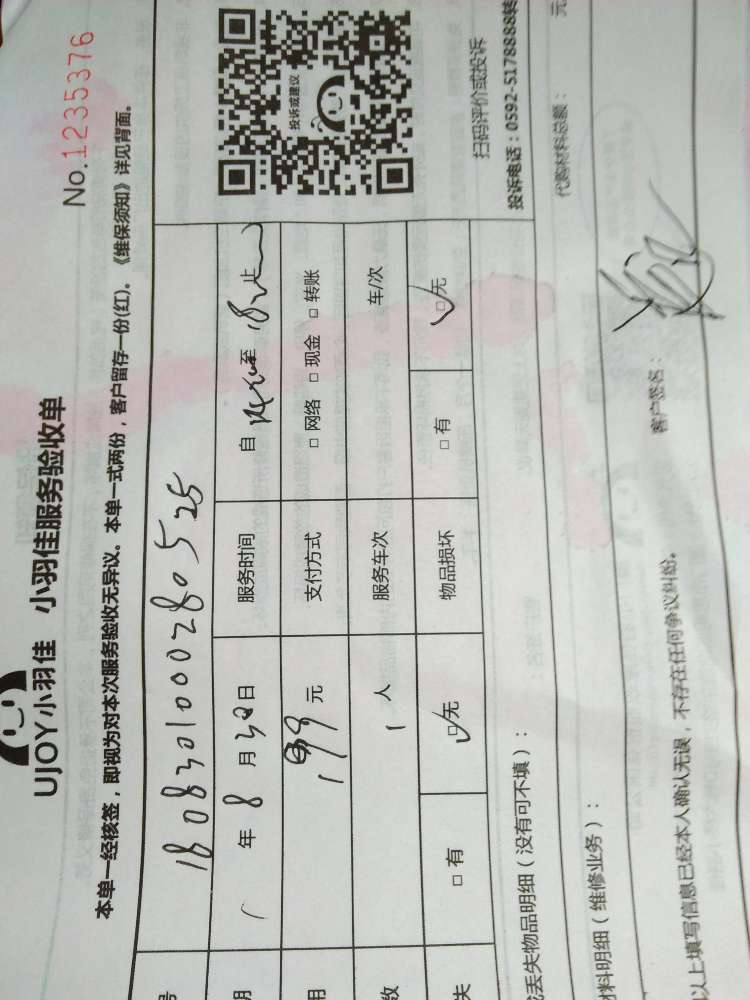 UJOY小羽佳 小羽佳服务验收单
No.1235376
本单一经核签，即视为对本次服务验收无异议。本单一式两份，客户留存一份(红)。《维保须知》详见背面。
号 180830100028052５
投诉或建议
年 8 月 30 日 服务时间 自 至 18 止
用 199 元 支付方式 □ 网络 □ 现金 □ 转账
数 1 人 服务车次 车/次
失 □ 有 ☑ 无 物品损坏 □ 有 ☑ 无
扫码评价或投诉
投诉电话：0592-5178888转
丢失物品明细（没有可不填）：
料明细（维修业务）：
代购材料总额： 元
以上填写信息已经本人确认无误，不存在任何争议纠纷。 客户签名：